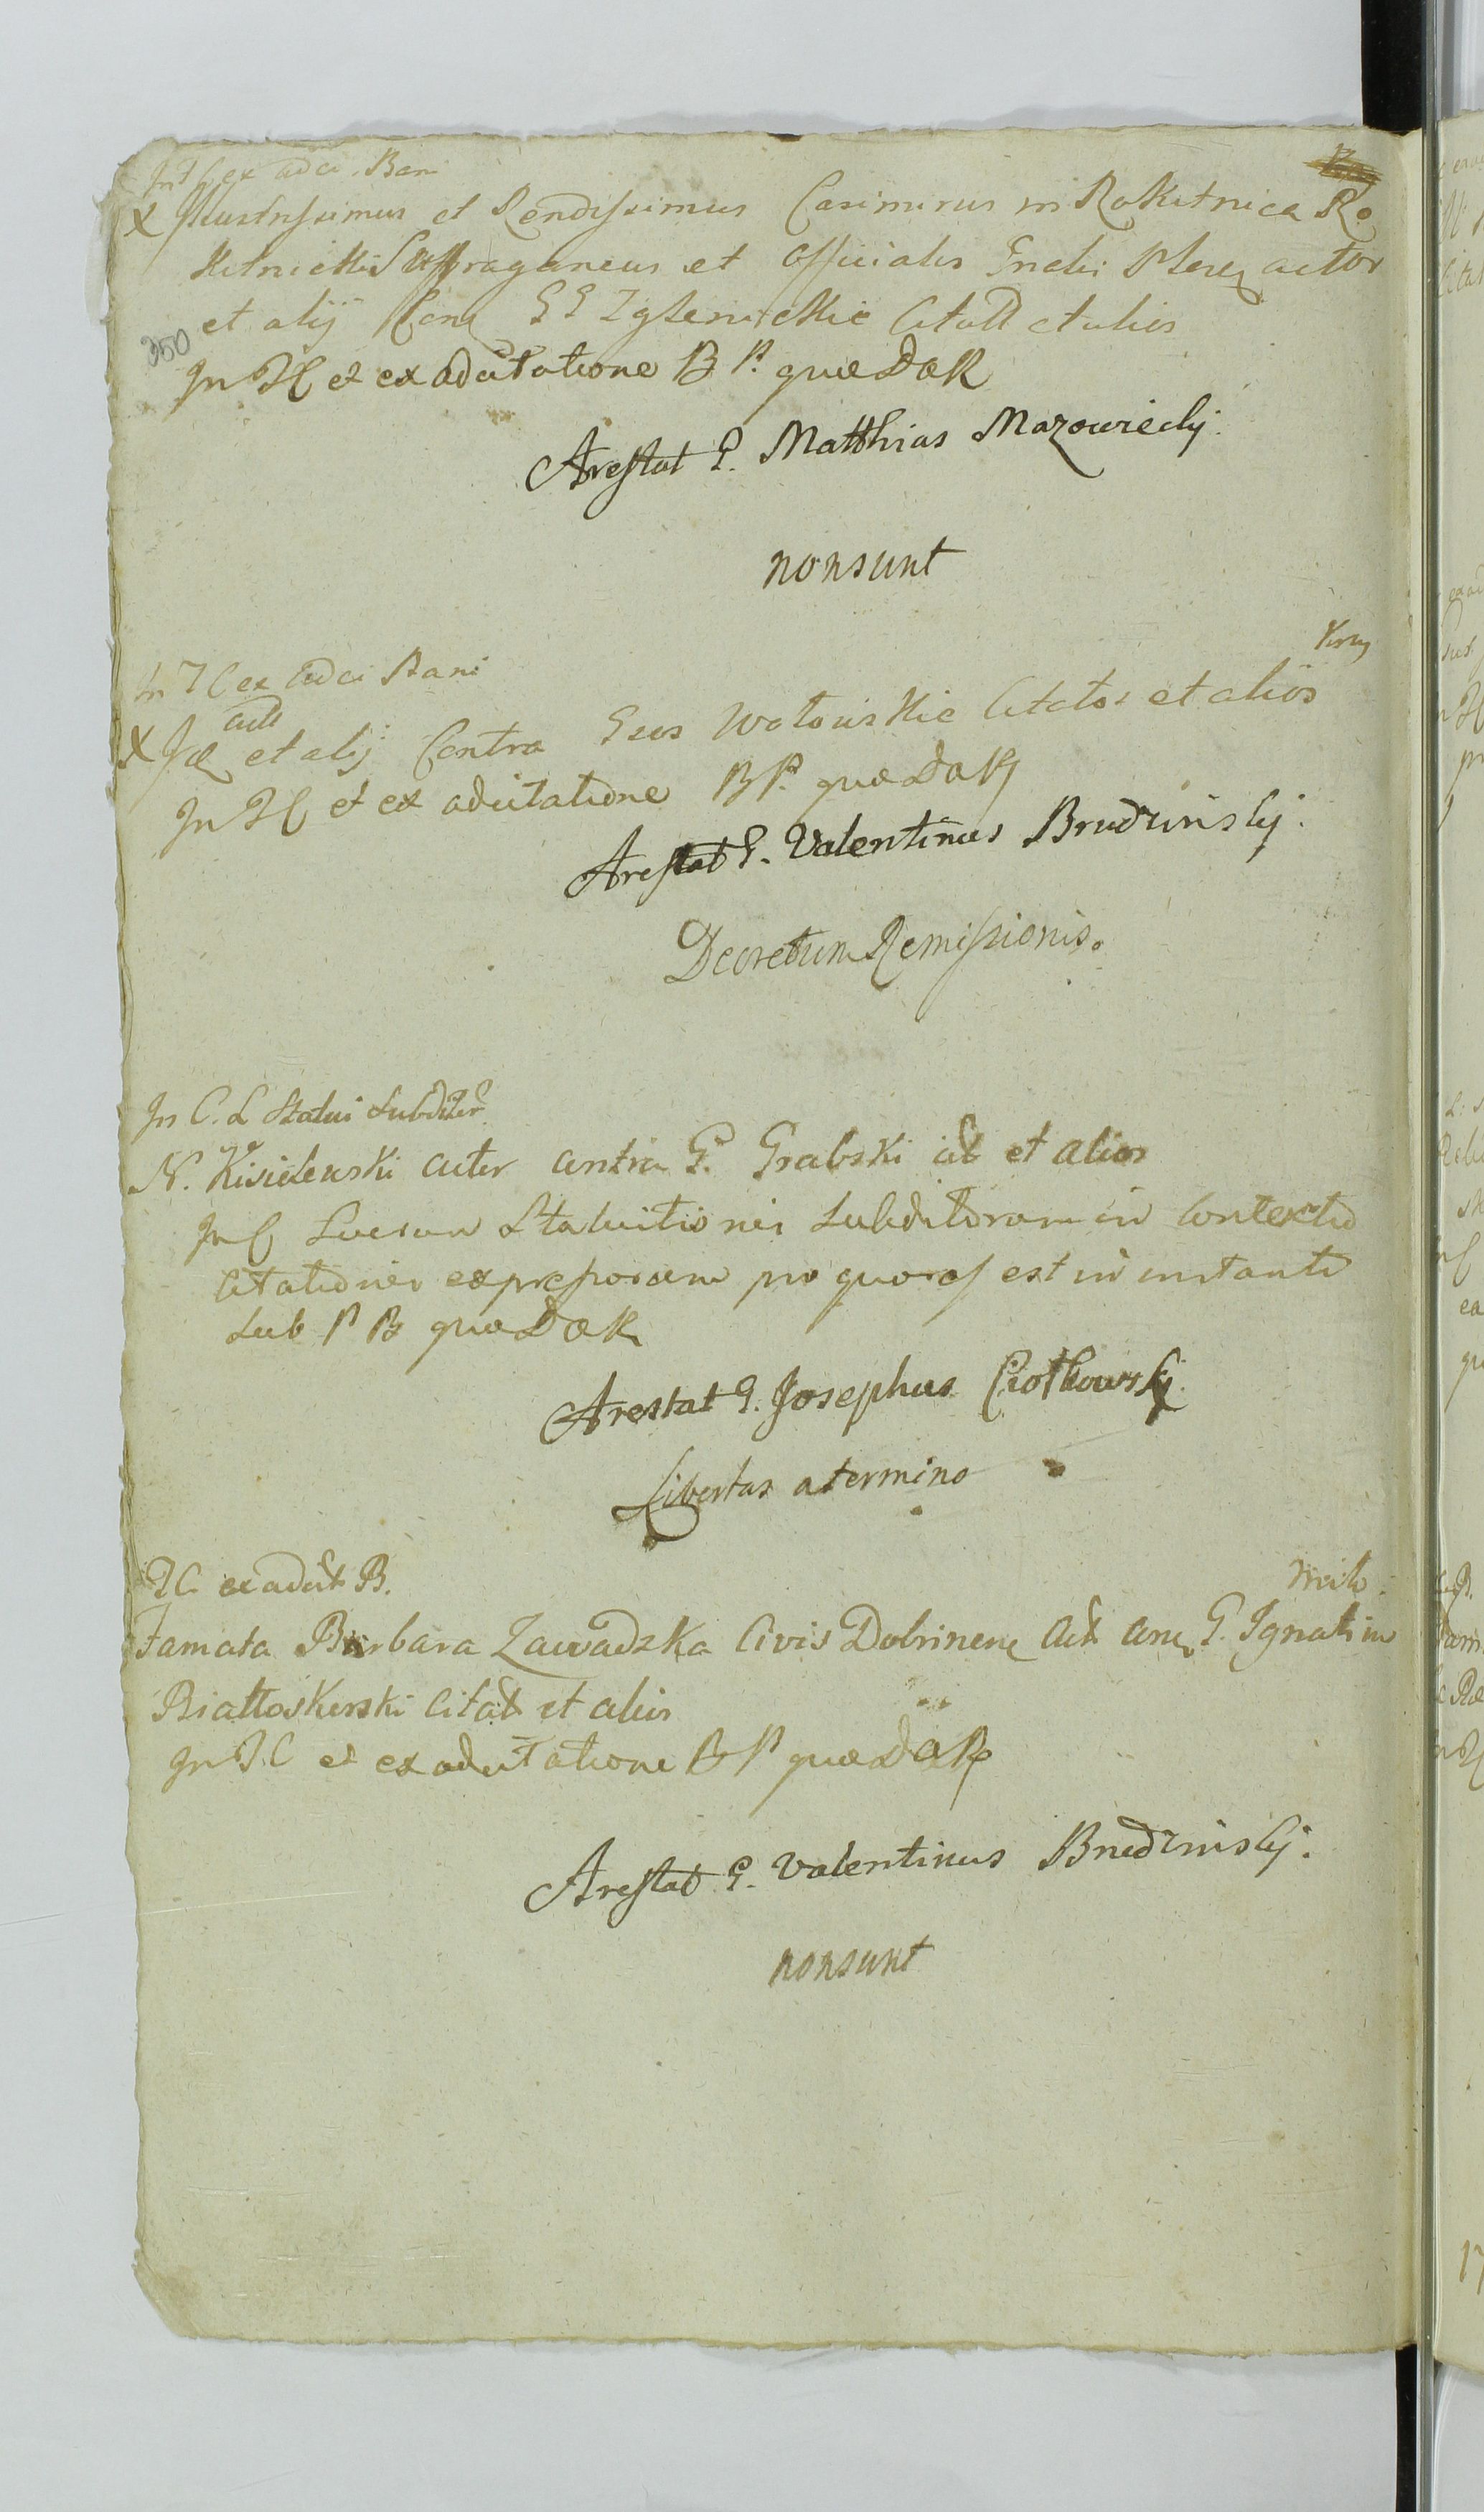 In J C ex adci. Ban
X Illustrissimus et Rendissimus Casimirus in Rokitnica Ro
kitnickii Suffraganeus et Officialis Gnalis Plocg actor
et alij Cong GG Zglenickie Citatt et alios
350
In JC et ex adcitatione B P. quæ DaR
Arestat G. Matthias Mazowiecky.
non sunt
In J C ex adci Bani
actt
X Jd et alij Contra Gsos Wolouskie Citatos et alios
In JC et ex adcitatione BP. quæ DaR
Arestat G. Valentinus Brudzinsky.
Decretum Remissionis.
In C. L Statui Subditor
N. Kisielewski actor contra G. Grabski citt et alios
In C Lucrum Statuitionis Subditorum in Contextu
Citationis expressorum pro quorq est in instanti
Sub P B quæ DaR
Arestat G. Josephus Ciotkowsky.
Libertas a termino
JC ex adcit B.
Famata Barbara Zawadzka Civis Dobrinenq Act conq G. Ignatium
Białłoskurski Citatt et alios
In J.C et ex adcitatione B P quæ DaR
Arestat G. Valentinus Brudzinsky.
non sunt